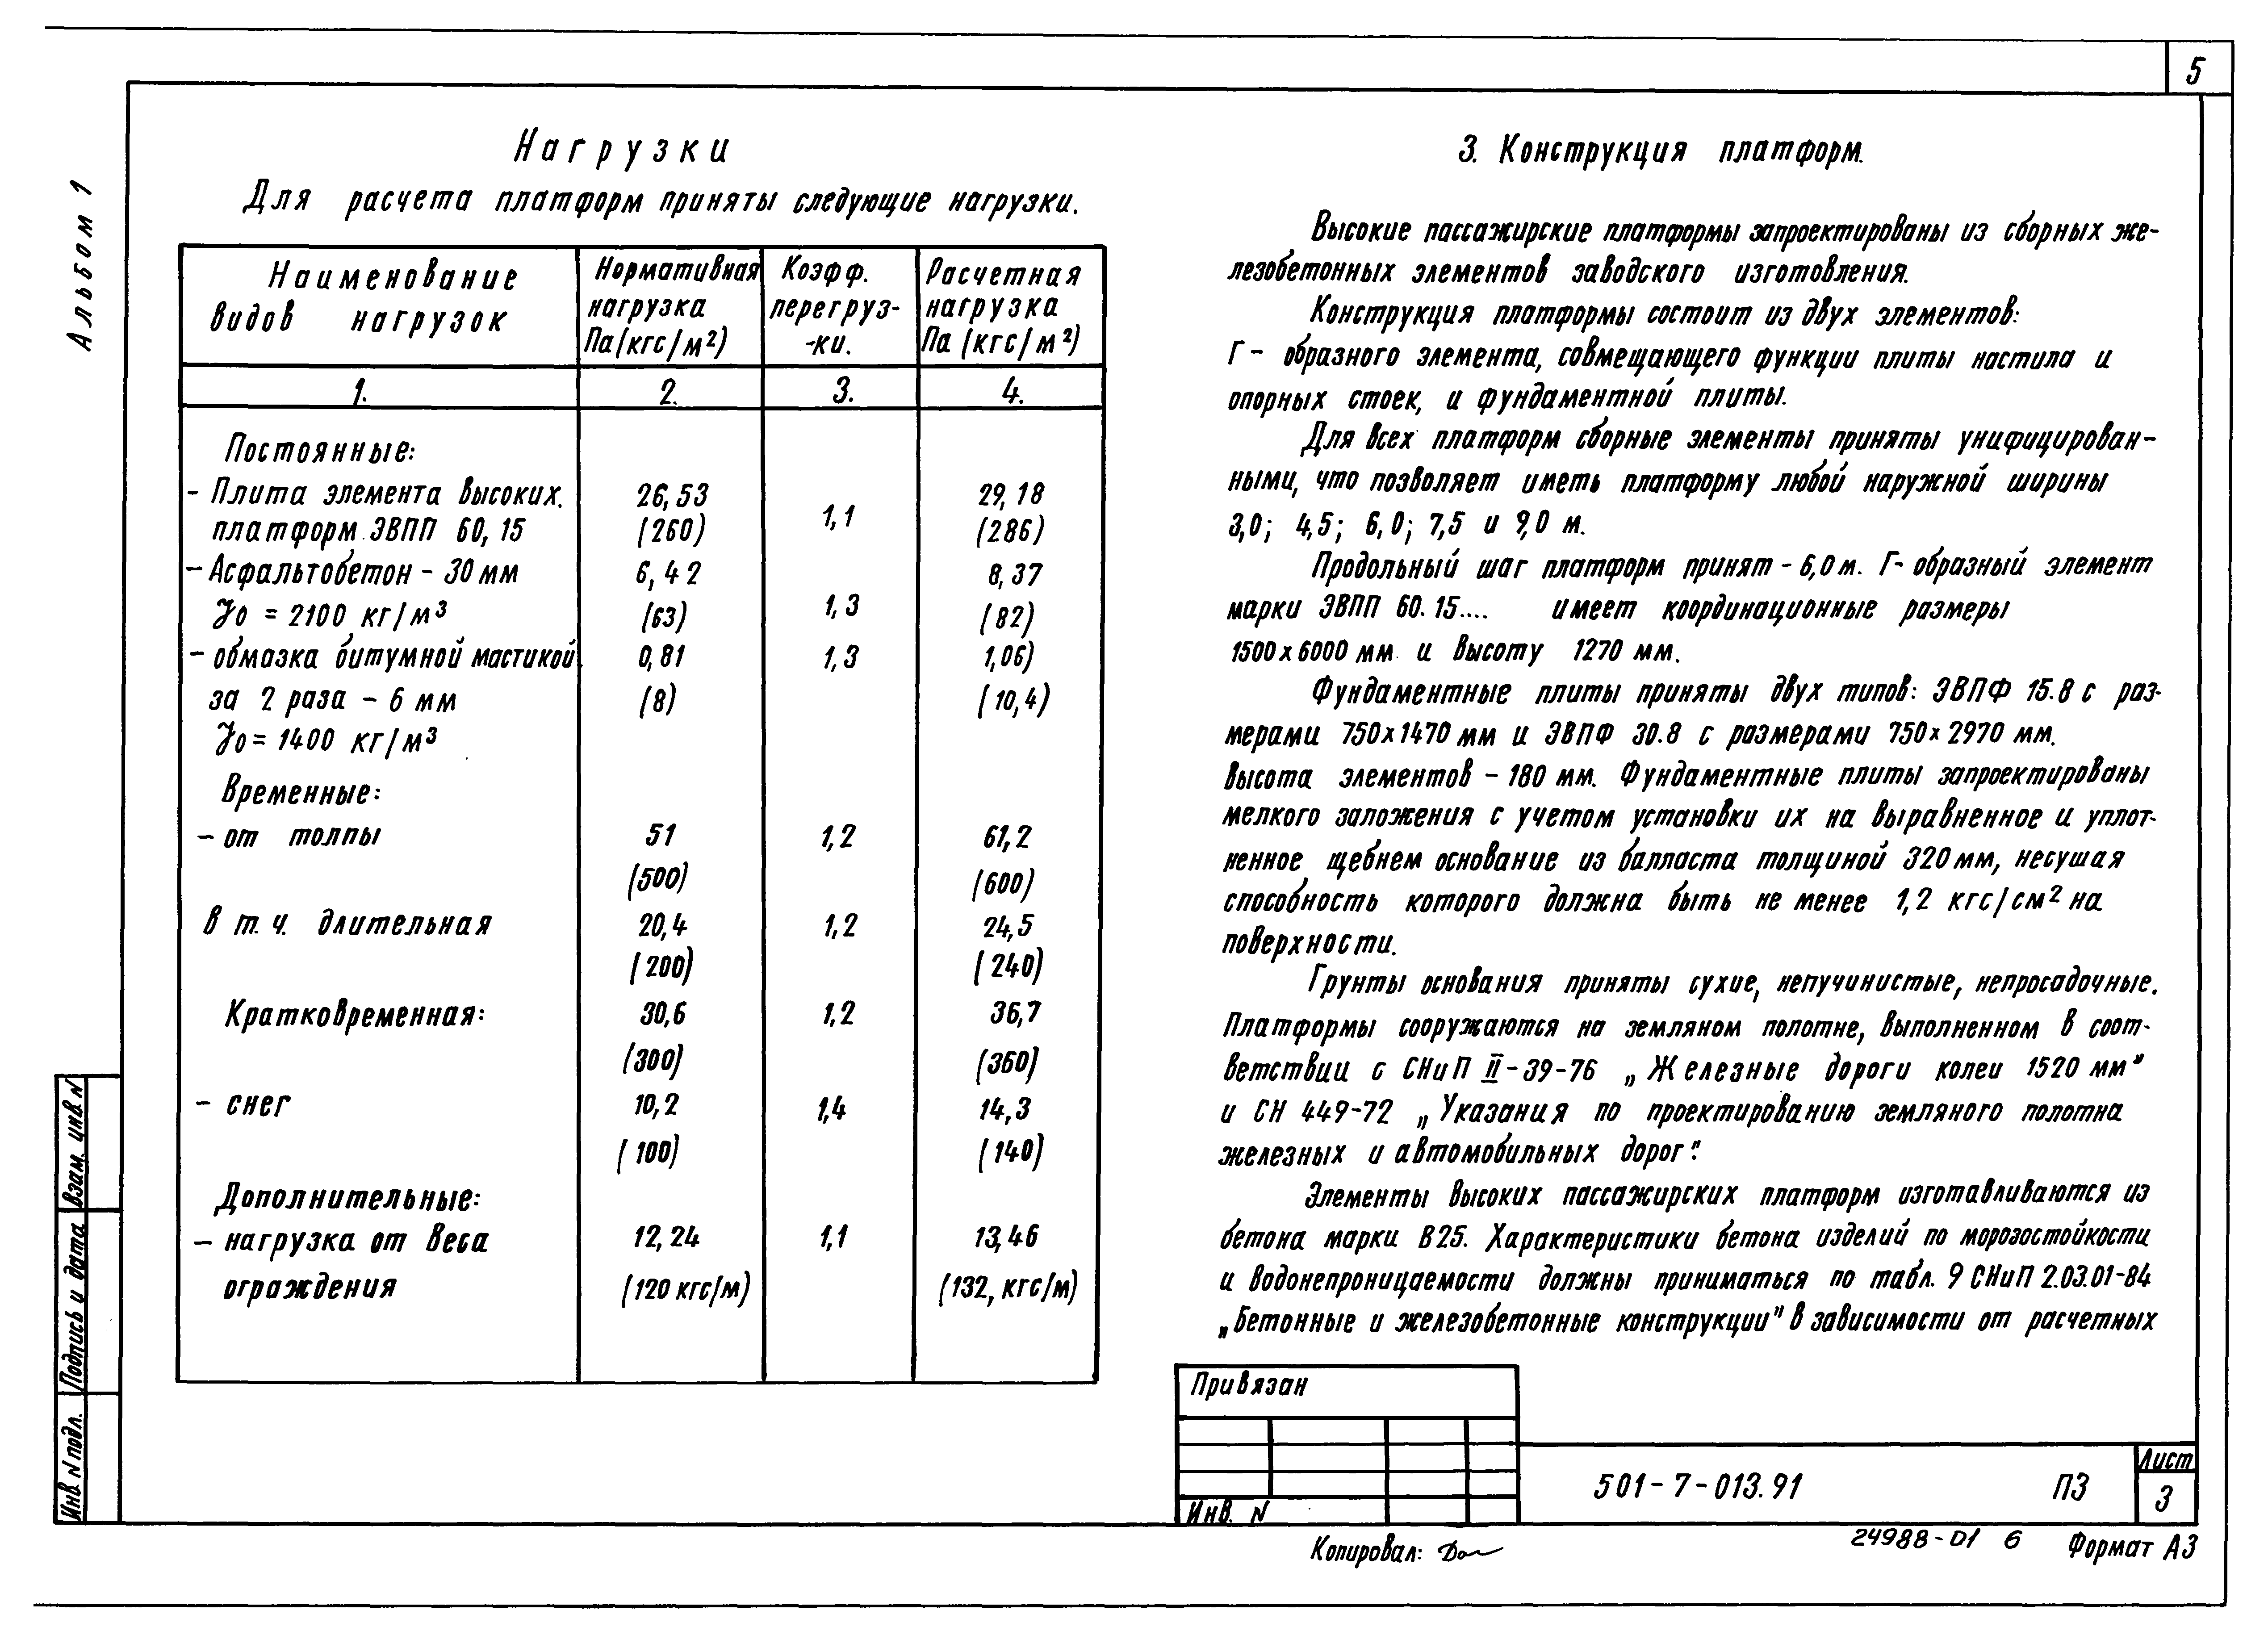 5
Альбом 1
Нагрузки
Для расчета платформ приняты следующие нагрузки.
Наименование видов нагрузок | Нормативная нагрузка Па(кгс/м²) | Коэфф. перегруз- -ки. | Расчетная нагрузка Па (кгс/м²)
1. 2. 3. 4.
Постоянные:
- Плита элемента высоких. 26,53 29,18
платформ ЭВПП 60,15 (260) 1,1 (286)
- Асфальтобетон - 30мм 6,42 8,37
γ0 = 2100 кг/м³ (63) 1,3 (82)
- обмазка битумной мастикой 0,81 1,3 1,06)
за 2 раза - 6 мм (8) (10,4)
γ0 = 1400 кг/м³
Временные:
- от толпы 51 1,2 61,2
(500) (600)
в т.ч. длительная 20,4 1,2 24,5
(200) (240)
Кратковременная: 30,6 1,2 36,7
(300) (360)
- снег 10,2 1,4 14,3
(100) (140)
Дополнительные:
- нагрузка от веса 12,24 1,1 13,46
ограждения (120 кгс/м) (132, кгс/м)
3. Конструкция платформ.
Высокие пассажирские платформы запроектированы из сборных же-
лезобетонных элементов заводского изготовления.
Конструкция платформы состоит из двух элементов:
Г - образного элемента, совмещающего функции плиты настила и
опорных стоек, и фундаментной плиты.
Для всех платформ сборные элементы приняты унифицирован-
ными, что позволяет иметь платформу любой наружной ширины
3,0; 4,5; 6,0; 7,5 и 9,0 м.
Продольный шаг платформ принят - 6,0 м. Г- образный элемент
марки ЭВПП 60.15.... имеет координационные размеры
1500х6000 мм и высоту 1270 мм.
Фундаментные плиты приняты двух типов: ЭВПФ 15.8 с раз-
мерами 750х1470 мм и ЭВПФ 30.8 с размерами 750х2970 мм.
Высота элементов - 180 мм. Фундаментные плиты запроектированы
мелкого заложения с учетом установки их на выравненное и уплот-
ненное щебнем основание из балласта толщиной 320мм, несушая
способность которого должна быть не менее 1,2 кгс/см² на
поверхности.
Грунты основания приняты сухие, непучинистые, непросадочные.
Платформы сооружаются на земляном полотне, выполненном в соот-
ветствии с СНиП II-39-76 „Железные дороги колеи 1520 мм"
и СН 449-72 „Указания по проектированию земляного полотна
железных и автомобильных дорог".
Элементы высоких пассажирских платформ изготавливаются из
бетона марки В25. Характеристики бетона изделий по морозостойкости
и водонепроницаемости должны приниматься по табл. 9 СНиП 2.03.01-84
„Бетонные и железобетонные конструкции" в зависимости от расчетных
Взам. инв. N
Подпись и дата
Инв. N подл.
Привязан
Инв. N
501-7-013.91 ПЗ
Лист
3
Копировал:
24988-01 6
Формат А3